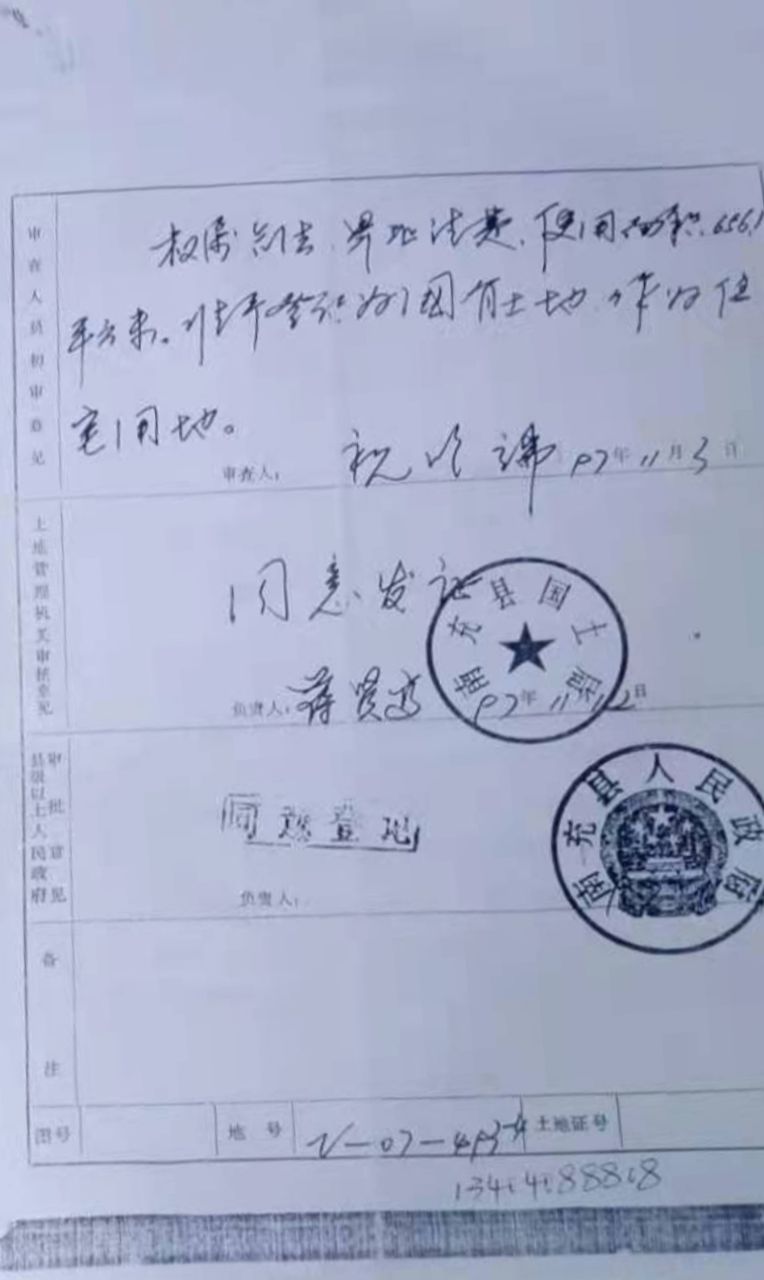 审查人员初审意见
权属合法，界址清楚，使用面积656.1
平方米。准予登记为国有土地，作为住
宅用地。
审查人：
97年11月3日
土地管理机关审核意见
同意发证
南充县国土局
负责人：蒋贤
97年11月12日
县级以上人民政府审批意见
同意登记
负责人：
南充县人民政府
备注
图号
地号
土地证号